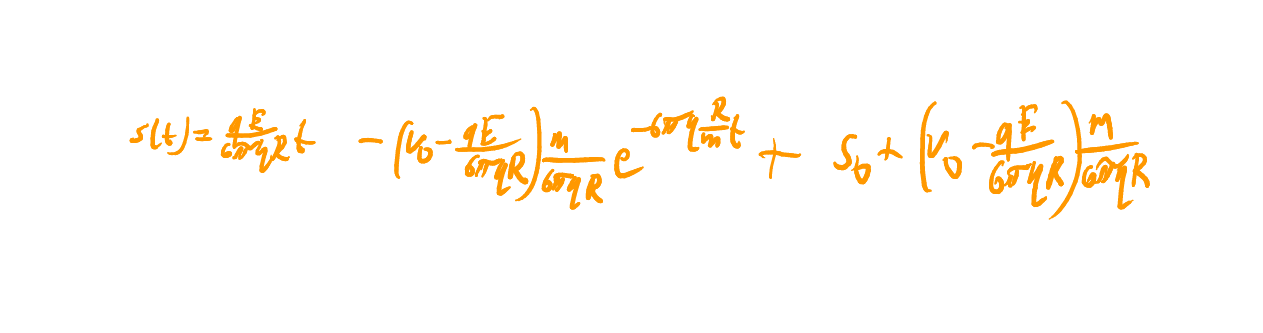 s(t) = \frac{qE}{6πηR} t - (v_0 - \frac{qE}{6πηR}) \frac{m}{6πηR} e^{-6πη\frac{R}{m}t} + s_0 + (v_0 - \frac{qE}{6πηR}) \frac{m}{6πηR}